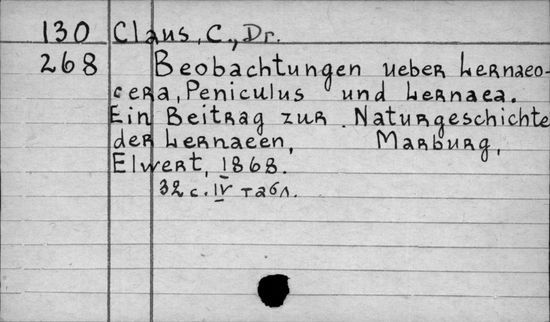 130 Claus, C., Dr.
268 Beobachtungen ueber Lernaeo-
cera, Peniculus und Lernaea.
Ein Beitrag zur Naturgeschichte
der Lernaeen, Marburg,
Elwert, 1868.
32 с. IV табл.